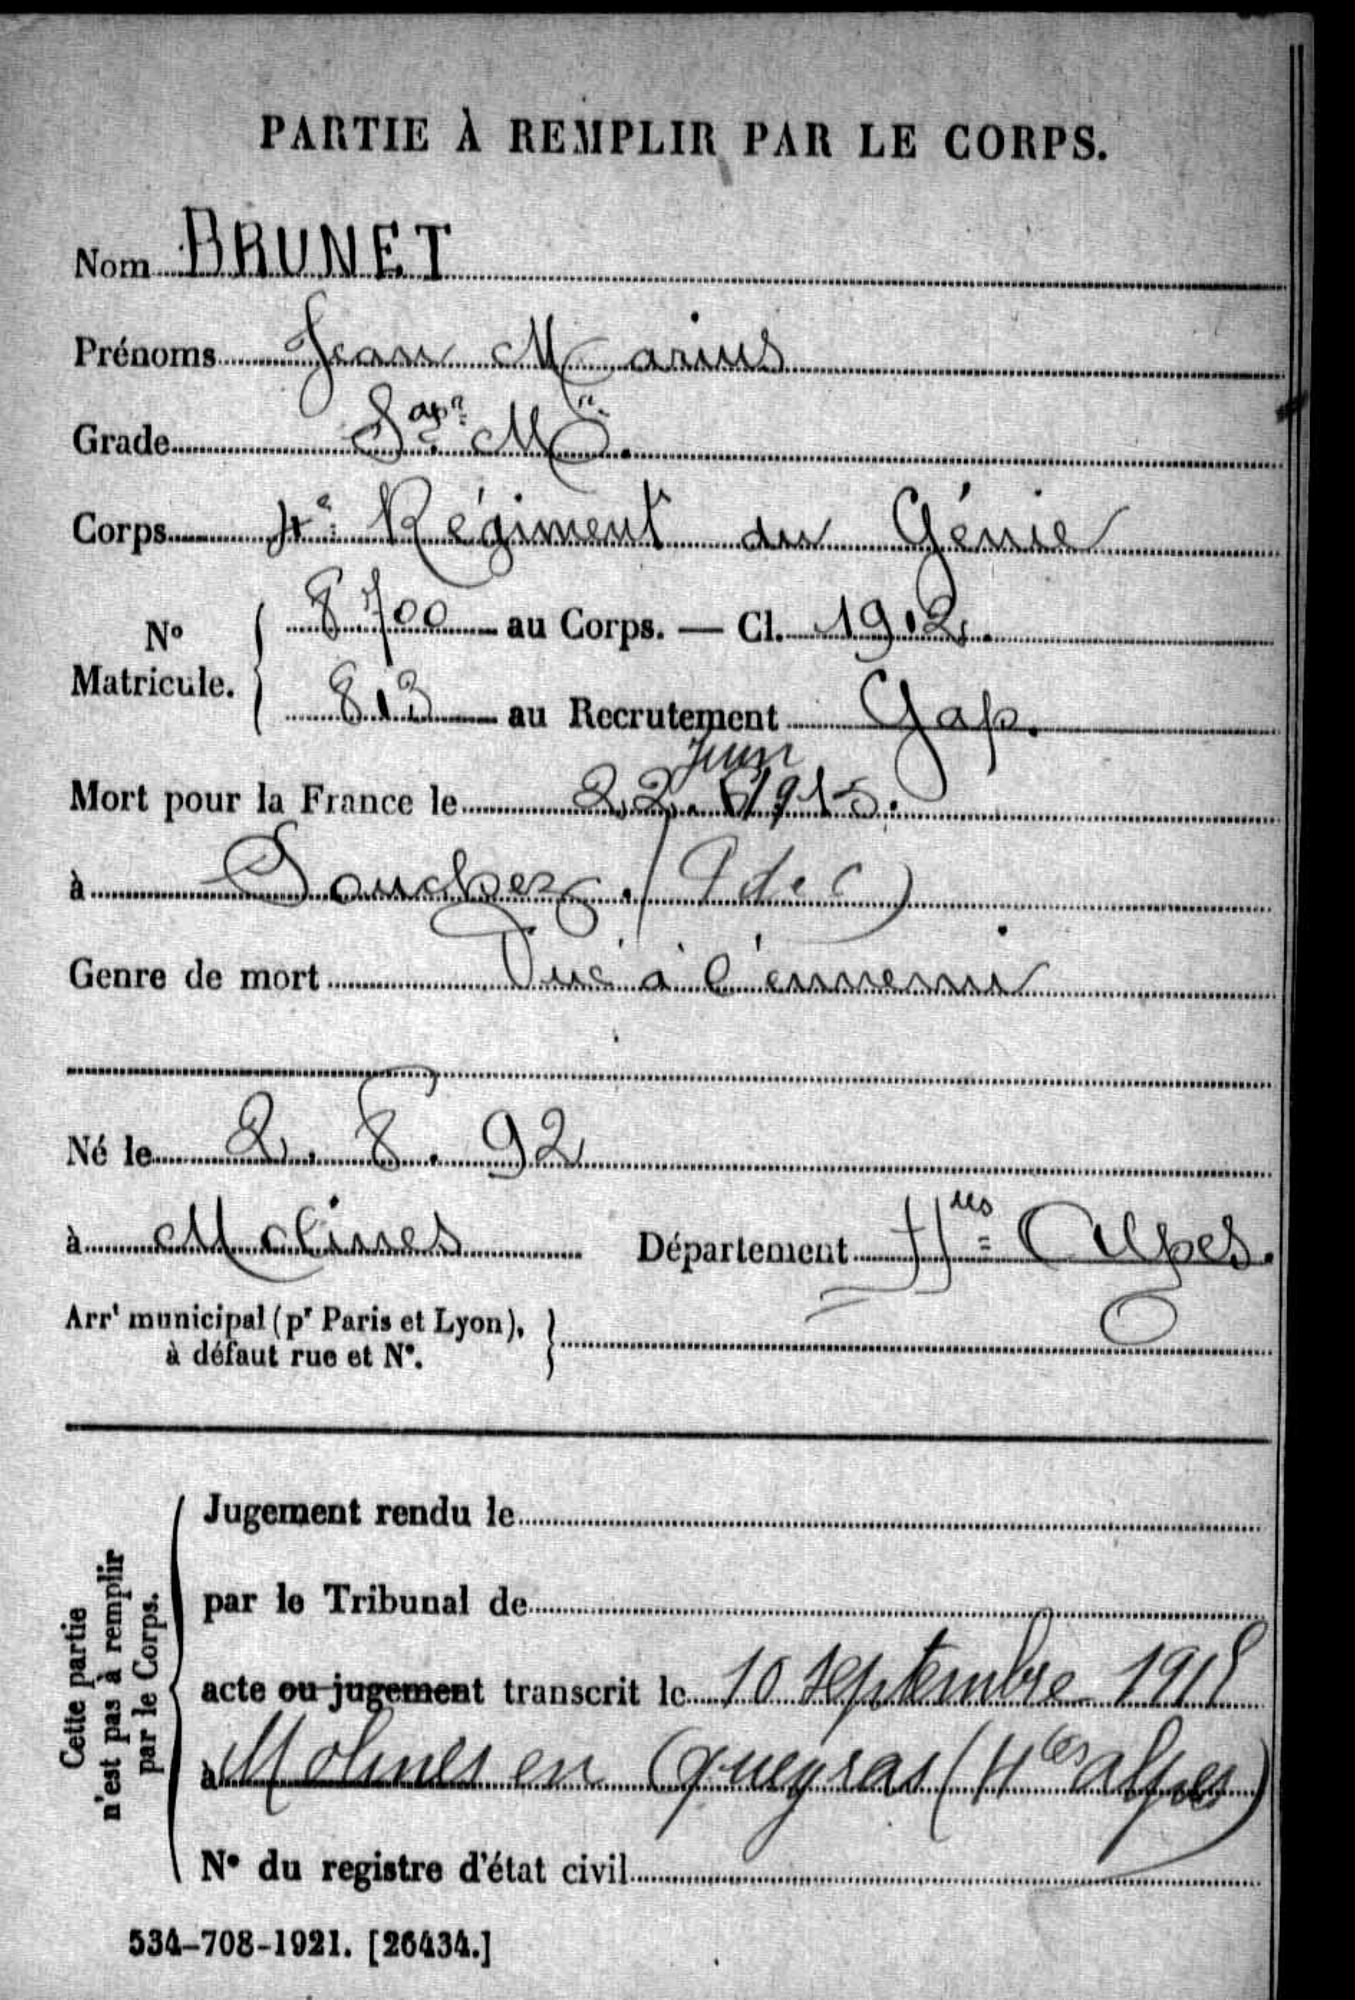 PARTIE À REMPLIR PAR LE CORPS.
Nom BRUNET
Prénoms Jean Marius
Grade Sap.r M.n
Corps 4e Régiment du Génie
No Matricule. 8700 au Corps. — Cl. 1912.
813 au Recrutement Gap.
Juin
Mort pour la France le 22. 1915.
à Souchez. (P de C)
Genre de mort Tué à l'ennemi
Né le 2. 8. 92
à Molines Département Htes Alpes.
Arrt municipal (pr Paris et Lyon),
à défaut rue et No.
Cette partie
n'est pas à remplir
par le Corps.
Jugement rendu le
par le Tribunal de
acte ou jugement transcrit le 10 septembre 1915
à Molines en Queyras (Htes Alpes)
No du registre d'état civil
534-708-1921. [26434.]